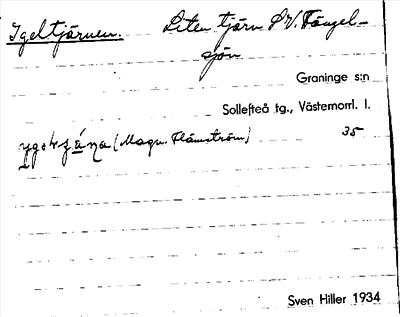 Igeltjärnen. Liten tjärn S.V. Fängel-
sjön
Graninge s:n
Sollefteå tg., Västernorrl. l.
(Magn. Flämström) 35
Sven Hiller 1934